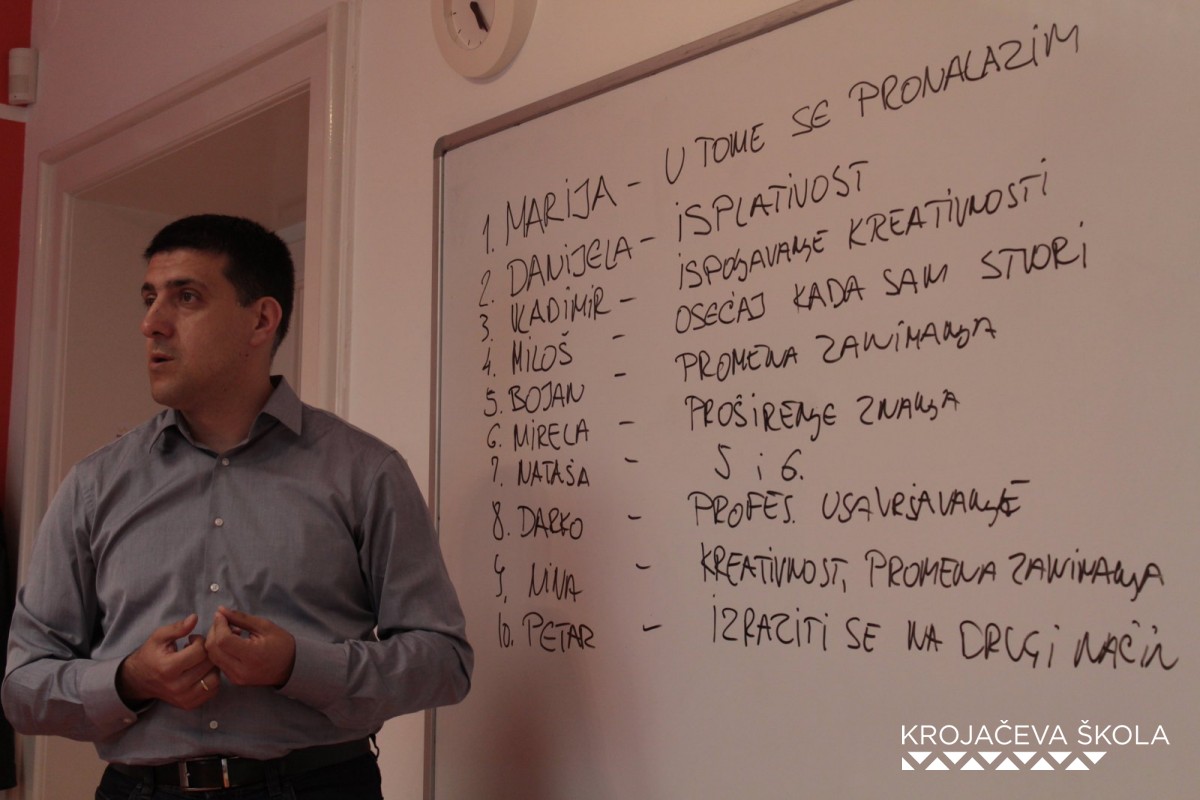 1. MARIJA - U TOME SE PRONALAZIM
2. DANIJELA - ISPLATIVOST
3. VLADIMIR - ISPOLJAVANJE KREATIVNOSTI
4. MILOŠ - OSEĆAJ KADA SAM STVORI
5. BOJAN - PROMENA ZANIMANJA
6. MIRELA - PROŠIRENJE ZNANJA
7. NATAŠA - 5 i 6.
8. DARKO - PROFES. USAVRŠAVANJE
9. NINA - KREATIVNOST, PROMENA ZANIMANJA
10. PETAR - IZRAZITI SE NA DRUGI NAČIN
KROJAČEVA ŠKOLA